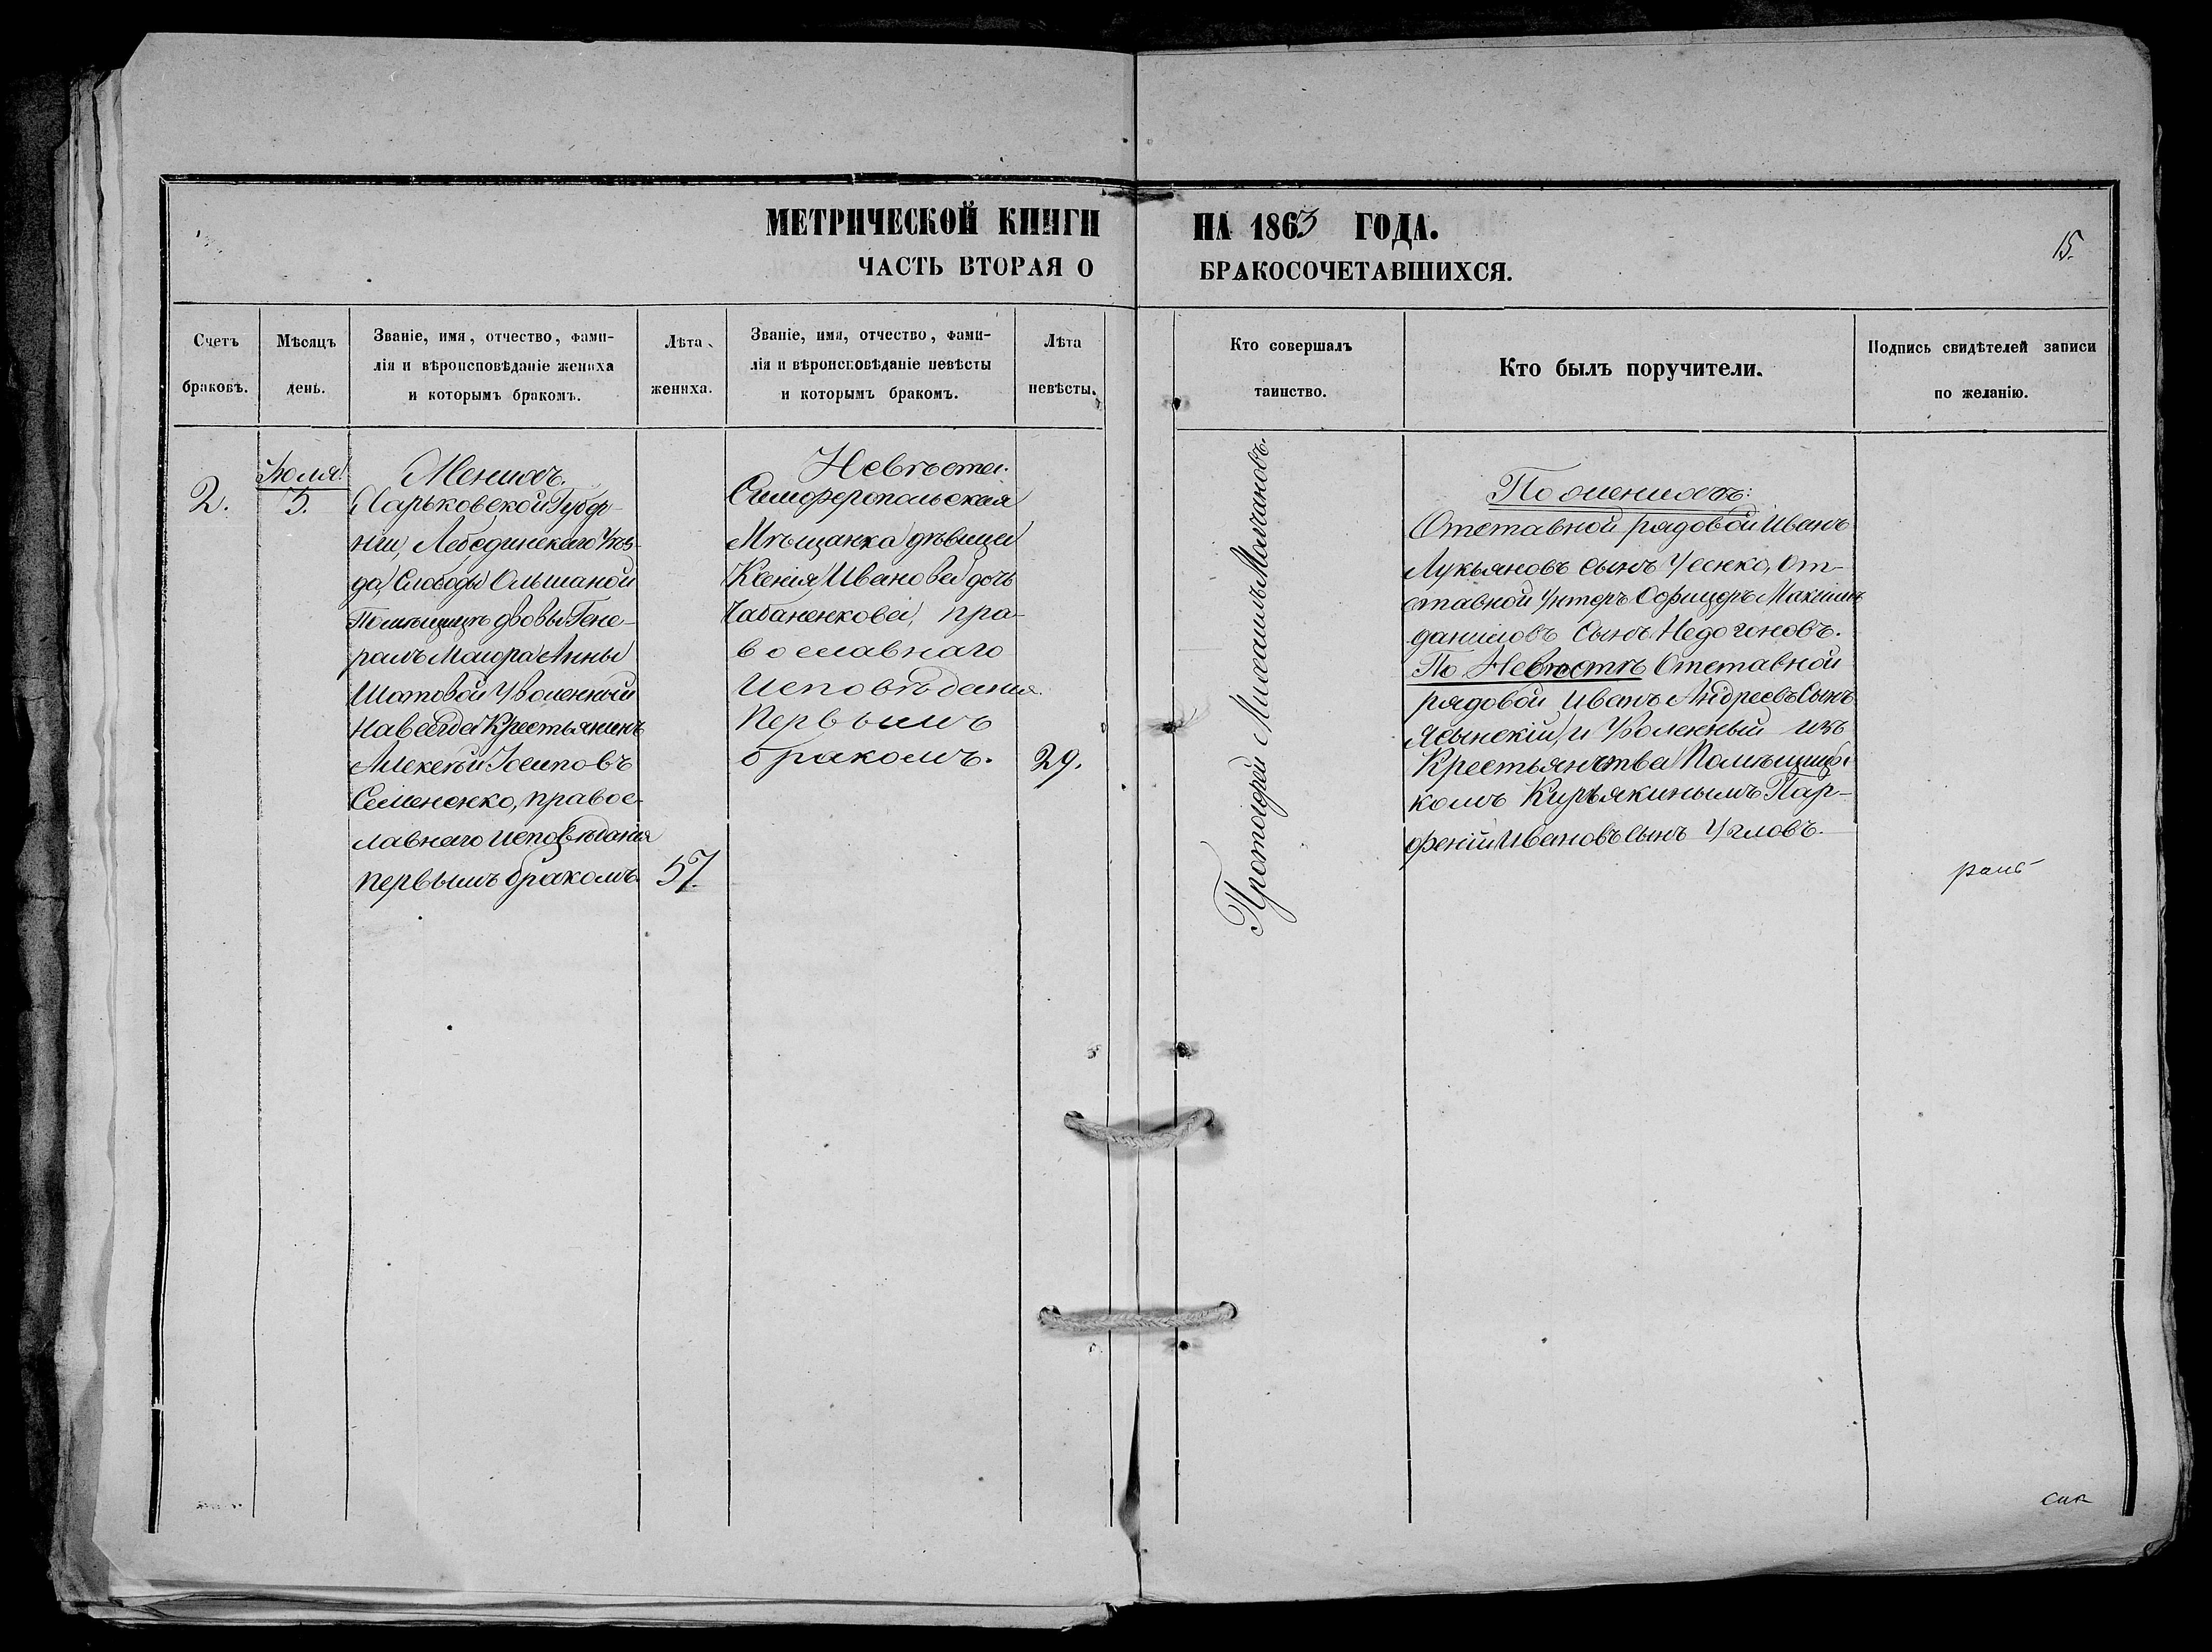 МЕТРИЧЕСКОЙ КНИГИ НА 1863 ГОДА.
ЧАСТЬ ВТОРАЯ О БРАКОСОЧЕТАВШИХСЯ.
15.
Счетъ
браковъ.
Мѣсяцъ
день.
Званіе, имя, отчество, фами-
лія и вѣроисповѣданіе жениха
и которымъ бракомъ.
Лѣта
жениха.
Званіе, имя, отчество, фами-
лія и вѣроисповѣданіе невѣсты
и которымъ бракомъ.
Лѣта
невѣсты.
Кто совершалъ
таинство.
Кто былъ поручители.
Подпись свидѣтелей записи
по желанію.
2.
Іюля
5.
Женихъ.
Харьковской Губер-
ніи, Лебединскаго Уѣз-
да, Слободы Ольшаной
Помѣщицѣ вдовы Гене-
ралъ Маіора Анны
Шатовой Уволенный
Навсегда Крестьянинъ
Алексѣй Іосиповъ
Семененко, правос-
лавнаго исповѣданія
первымъ бракомъ.
57.
Невѣста.
Симферопольская
Мѣщанка дѣвица
Ксенія Иванова дочь
Чабаненкова, пра-
вославнаго
исповѣданія
первымъ
бракомъ.
29.
Протоіерей Михаилъ Молчановъ.
По женихѣ:
Отставной рядовой Иванъ
Лукьяновъ сынъ Усенко, От-
ставной Унтеръ Офицеръ Максимъ
Даниловъ Сынъ Недогоновъ.
По Невѣстѣ Отставной
рядовой Иванъ Андреевъ Сынъ
Ясынскій, и Уволенный изъ
Крестьянства Помѣщи
комъ Кирьякинымъ Пар-
феній Ивановъ Сынъ Угловъ.